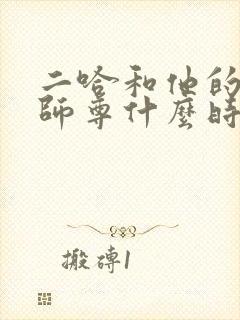 二哈和他的
師尊什麼時
搬磚1